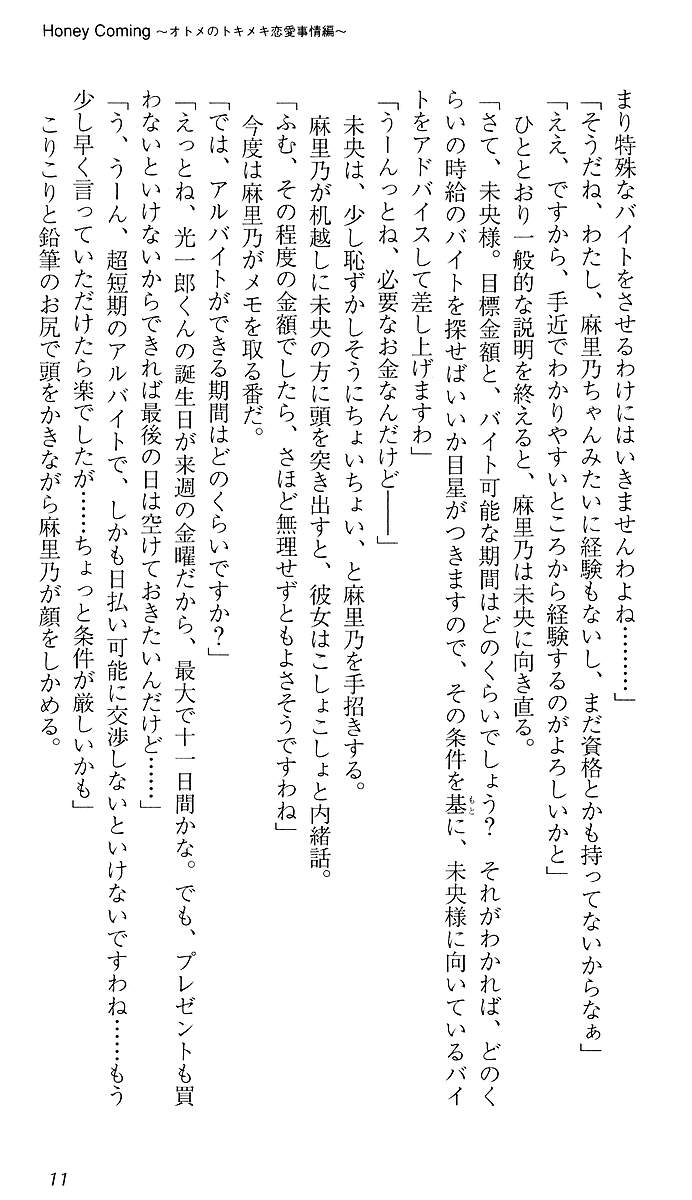 Honey Coming ～オトメのトキメキ恋愛事情編～
まり特殊なバイトをさせるわけにはいきませんわよね………」
「そうだね、わたし、麻里乃ちゃんみたいに経験もないし、まだ資格とかも持ってないからなぁ」
「ええ、ですから、手近でわかりやすいところから経験するのがよろしいかと」
ひととおり一般的な説明を終えると、麻里乃は未央に向き直る。
「さて、未央様。目標金額と、バイト可能な期間はどのくらいでしょう？　それがわかれば、どのく
らいの時給のバイトを探せばいいか目星がつきますので、その条件を基もとに、未央様に向いているバイ
トをアドバイスして差し上げますわ」
「うーんっとね、必要なお金なんだけど――」
未央は、少し恥ずかしそうにちょいちょい、と麻里乃を手招きする。
麻里乃が机越しに未央の方に頭を突き出すと、彼女はこしょこしょと内緒話。
「ふむ、その程度の金額でしたら、さほど無理せずともよさそうですわね」
今度は麻里乃がメモを取る番だ。
「では、アルバイトができる期間はどのくらいですか？」
「えっとね、光一郎くんの誕生日が来週の金曜だから、最大で十一日間かな。でも、プレゼントも買
わないといけないからできれば最後の日は空けておきたいんだけど……」
「う、うーん、超短期のアルバイトで、しかも日払い可能に交渉しないといけないですわね……もう
少し早く言っていただけたら楽でしたが……ちょっと条件が厳しいかも」
こりこりと鉛筆のお尻で頭をかきながら麻里乃が顔をしかめる。
11